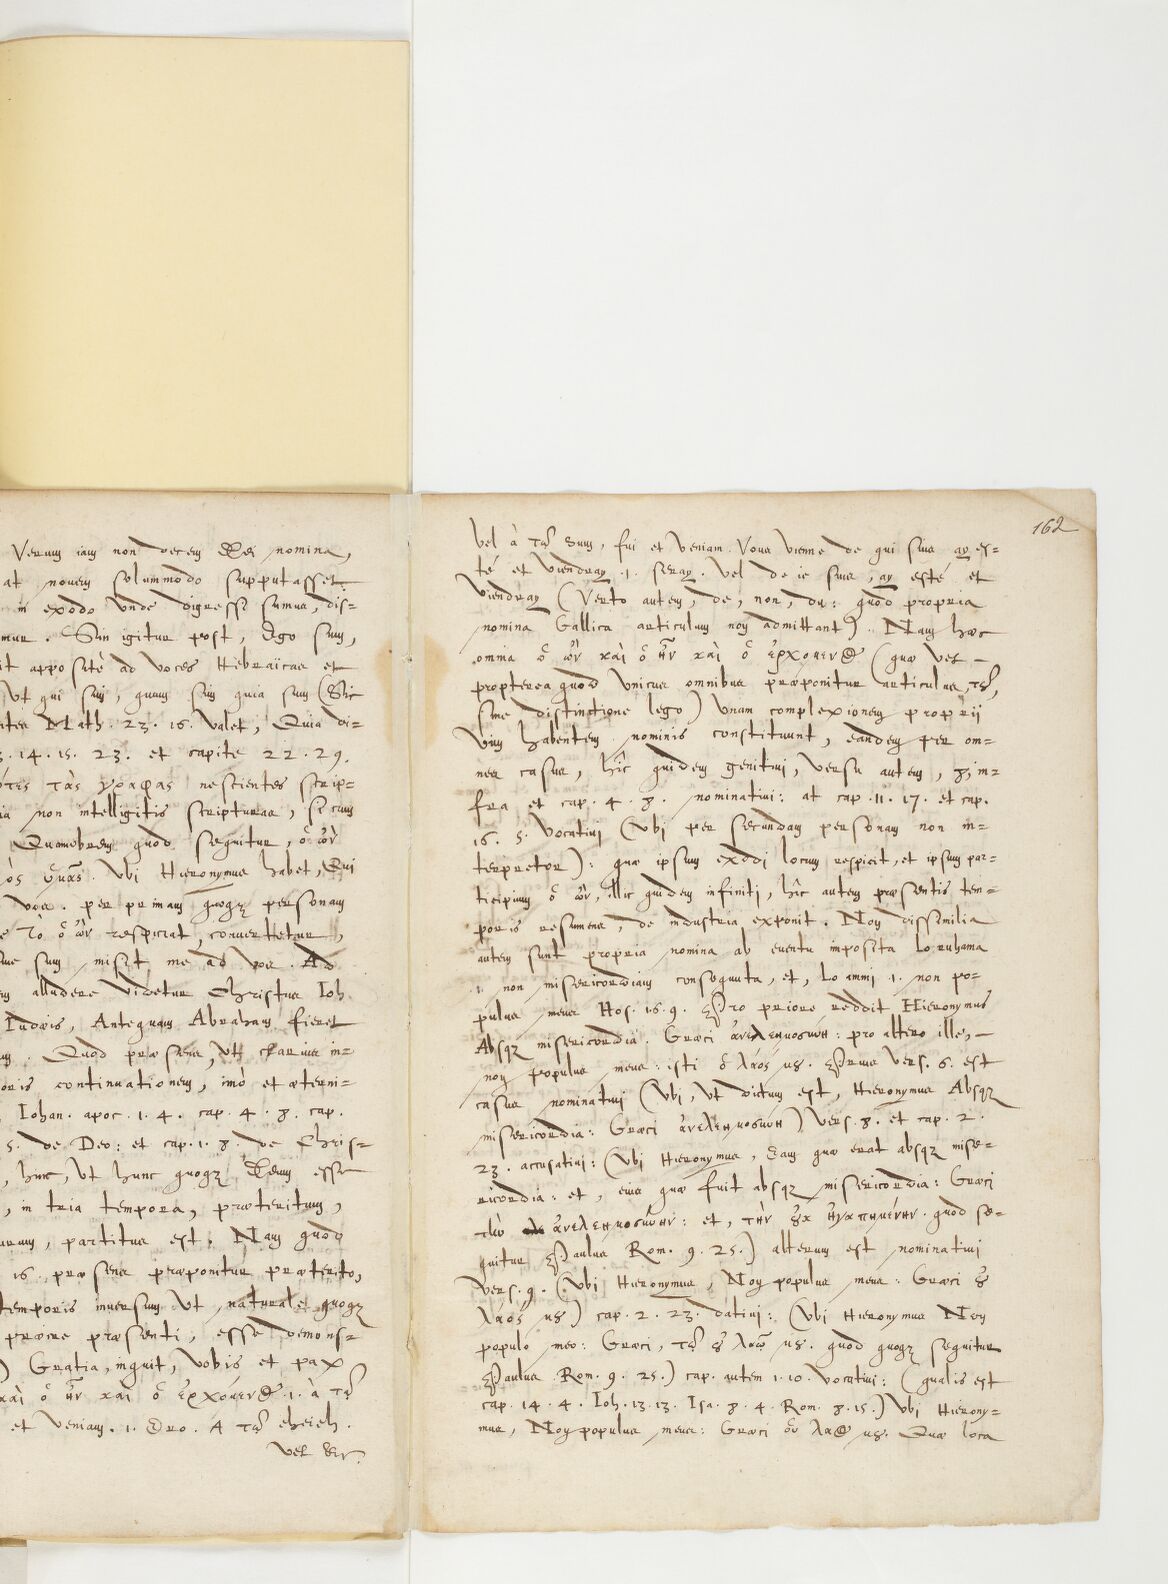 Verum iam non decem Dei nomina,
at novem solummodo supputasset.
in exodo unde digressi sumus, dis=
mur. Sin igitur post, Ego sum,
it appositè ad voces Hebraicas et
ut qui sum, quam sim quia sum (Sic
Math. 23. 16. valet, Quia di=
3. 14. 15. 23. et capite 22. 29.
ότες τὰς γραφας nescientes scrip=
ia non intelligitis scripturas, si cum
Quamobrem quod sequitur, ὁ ὢν
ὸς ὑμᾶς. Ubi Hieronymus habet, Qui
vos. per primam quoq; personam
τὸ ὁ ὢν respiciat, convertetur,
sum misit me ad vos. Ad
alludere videtur Christus Ioh.
Iudæis, Antequam Abraham fieret
Quod præsens, ut clarius in=
oris continuationem, imò et æterni=
Iohan. apoc. 1. 4. cap. 4. 8. cap.
5. de Deo: et cap. 1. 8. de Chris=
, hinc, ut hunc quoq; Deum esse
, in tria tempora, præteritum,
urum, partitus est. Nam quod
16. præsens præponitur præterito,
temporis inversum ut naturalet quoq;
præire præsenti, esse demons=
) Gratia, inquit, vobis et pax
καὶ ὁ ἦν καὶ ὁ ἐρχόμενος .1. à τῶ
et veniam .1. Ero. A τῶ eheieh.
vel
162
vel à τῶ sum, fui et veniam. Vous vienne de qui suis ay es=
té et viendray .1. seray. vel de ie suis, ay esté et
viendray (Verto autem, de, non, du: quòd propria
nomina Gallica articulum non admittant). Nam hæc
omnia ὁ ὢν καὶ ὁ ἦν καὶ ὁ ἐρχομενος (quæ vel
propterea quod unicus omnibus præponitur articulus, τῶ,
sine distinctione lego) unam complexionem proprii
vim habentem nominis constituunt, eandem per om=
nes casus, hîc quidem genitivi, versu autem, 8, in=
fra, et cap. 4. 8. nominativi: at cap. 11. 17. et cap.
16. 5. vocativi (ubi per secundam personam non in=
terpretor): quæ ipsum exodi locum respicit, et ipsum par=
ticipium ὁ ὢν, illic quidem infiniti, hîc autem præsentis tem=
poris resumens, de industria exponit. Non dissimilia
autem sunt propria nomina ab eventu imposita Loruhama
.1. non misericordiam consequuta, et, Lo ammi .1. non po=
pulus meus Hos. 1. 6. 9. Pro priore reddit Hieronymus
Absq; misericordia. Græci ἀνελεημοσύνη: pro altero ille,
non populus meus: isti ὁ λάος μȣ. Prius vers. 6. est
casus nominativi (ubi, ut dictum est, Hieronymus Absq;
misericordia: Græci ἀνελεημοσύνη) vers. 8. et cap. 2.
23. accusativi: (ubi Hieronymus, Eam quæ erat absq; mise=
ricordia: et, eius quæ fuit absq; misericordia: Græci
τὴν ἀνελεημοσύνην: et, τὴν ȣκ ἠγαπημένην. quod se=
quitur Paulus Rom. 9. 25.) alterum est nominativi
vers. 9. (ubi Hieronymus, Non populus meus: Græci ȣ
λάος μȣ) cap. 2. 23. dativi: (ubi Hieronymus Non
populo meo: Græci, τῶ ȣ λαῶ μȣ. quod quoq; sequitur
Paulus Rom. 9. 25.) cap. autem 1. 10. vocativi: (qualis est
cap. 14. 4. Ioh. 13. 13. Isa. 8. 4. Rom. 8. 15.) ubi Hierony=
mus, Non populus meus: Græci λαος μȣ. Quæ loca